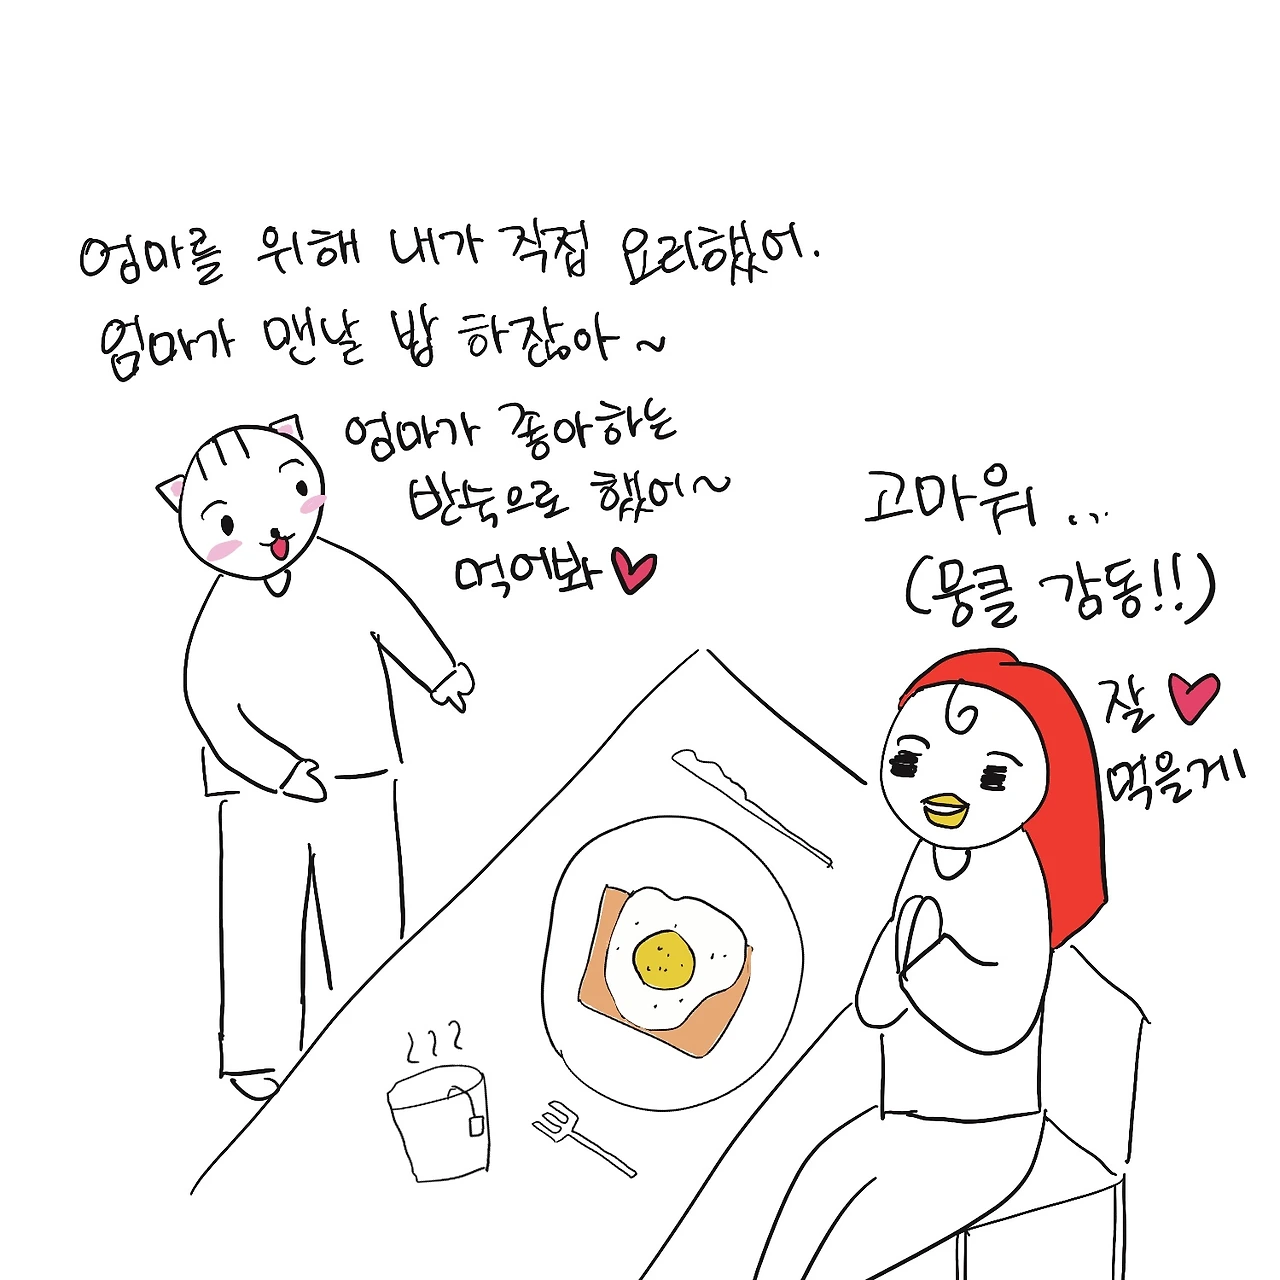 엄마를 위해 내가 직접 요리했어.
엄마가 맨날 밥 하잖아~
엄마가 좋아하는
반숙으로 했어~
먹어봐♥
고마워...
(뭉클 감동!!)
잘♥
먹을게